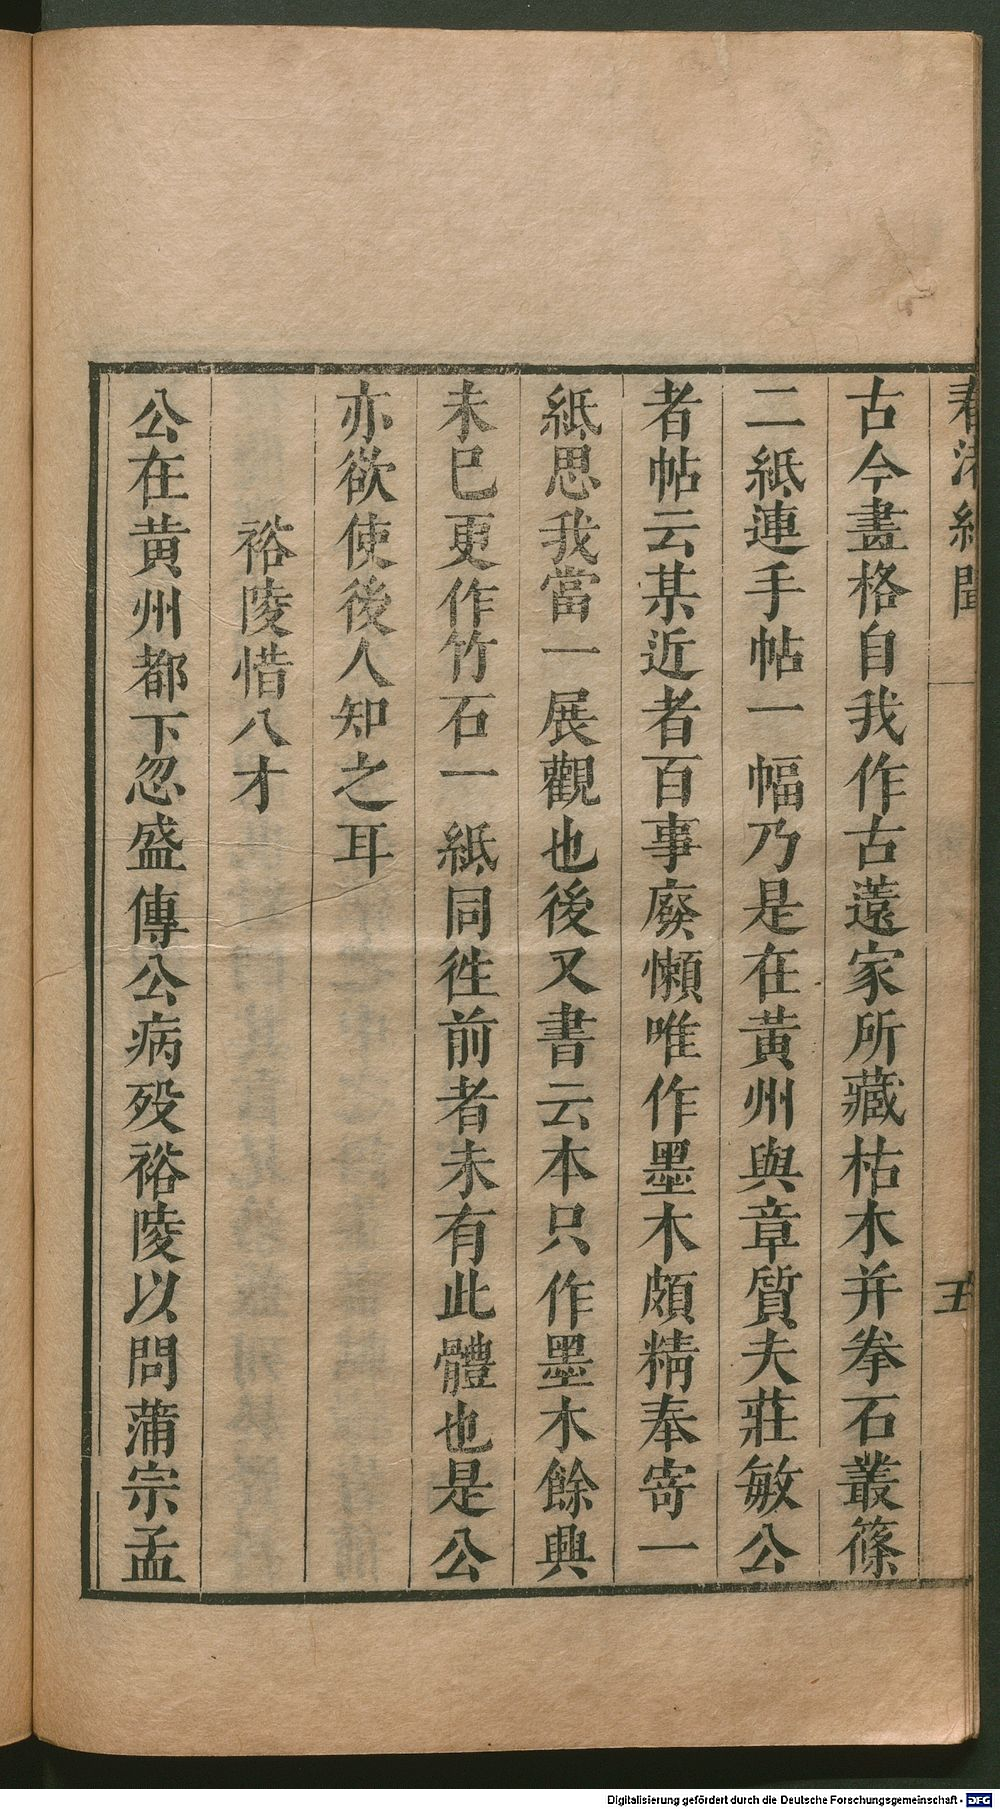 春渚紀聞
五
古今畫格自我作古薳家所藏枯木并拳石叢篠
二紙連手帖一幅乃是在黃州與章質夫莊敏公
者帖云某近者百事廢懶唯作墨木頗精奉寄一
紙思我當一展觀也後又書云本只作墨木餘興
未已更作竹石一紙同徃前者未有此體也是公
亦欲使後人知之耳
裕陵惜人才
公在黃州都下忽盛傳公病歿裕陵以問蒲宗孟
Digitalisierung gefördert durch die Deutsche Forschungsgemeinschaft - DFG